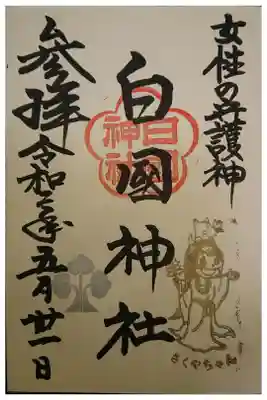 女性の守護神
白國神社
参拝 令和年五月廿一日
白國
神社
さくやちゃん